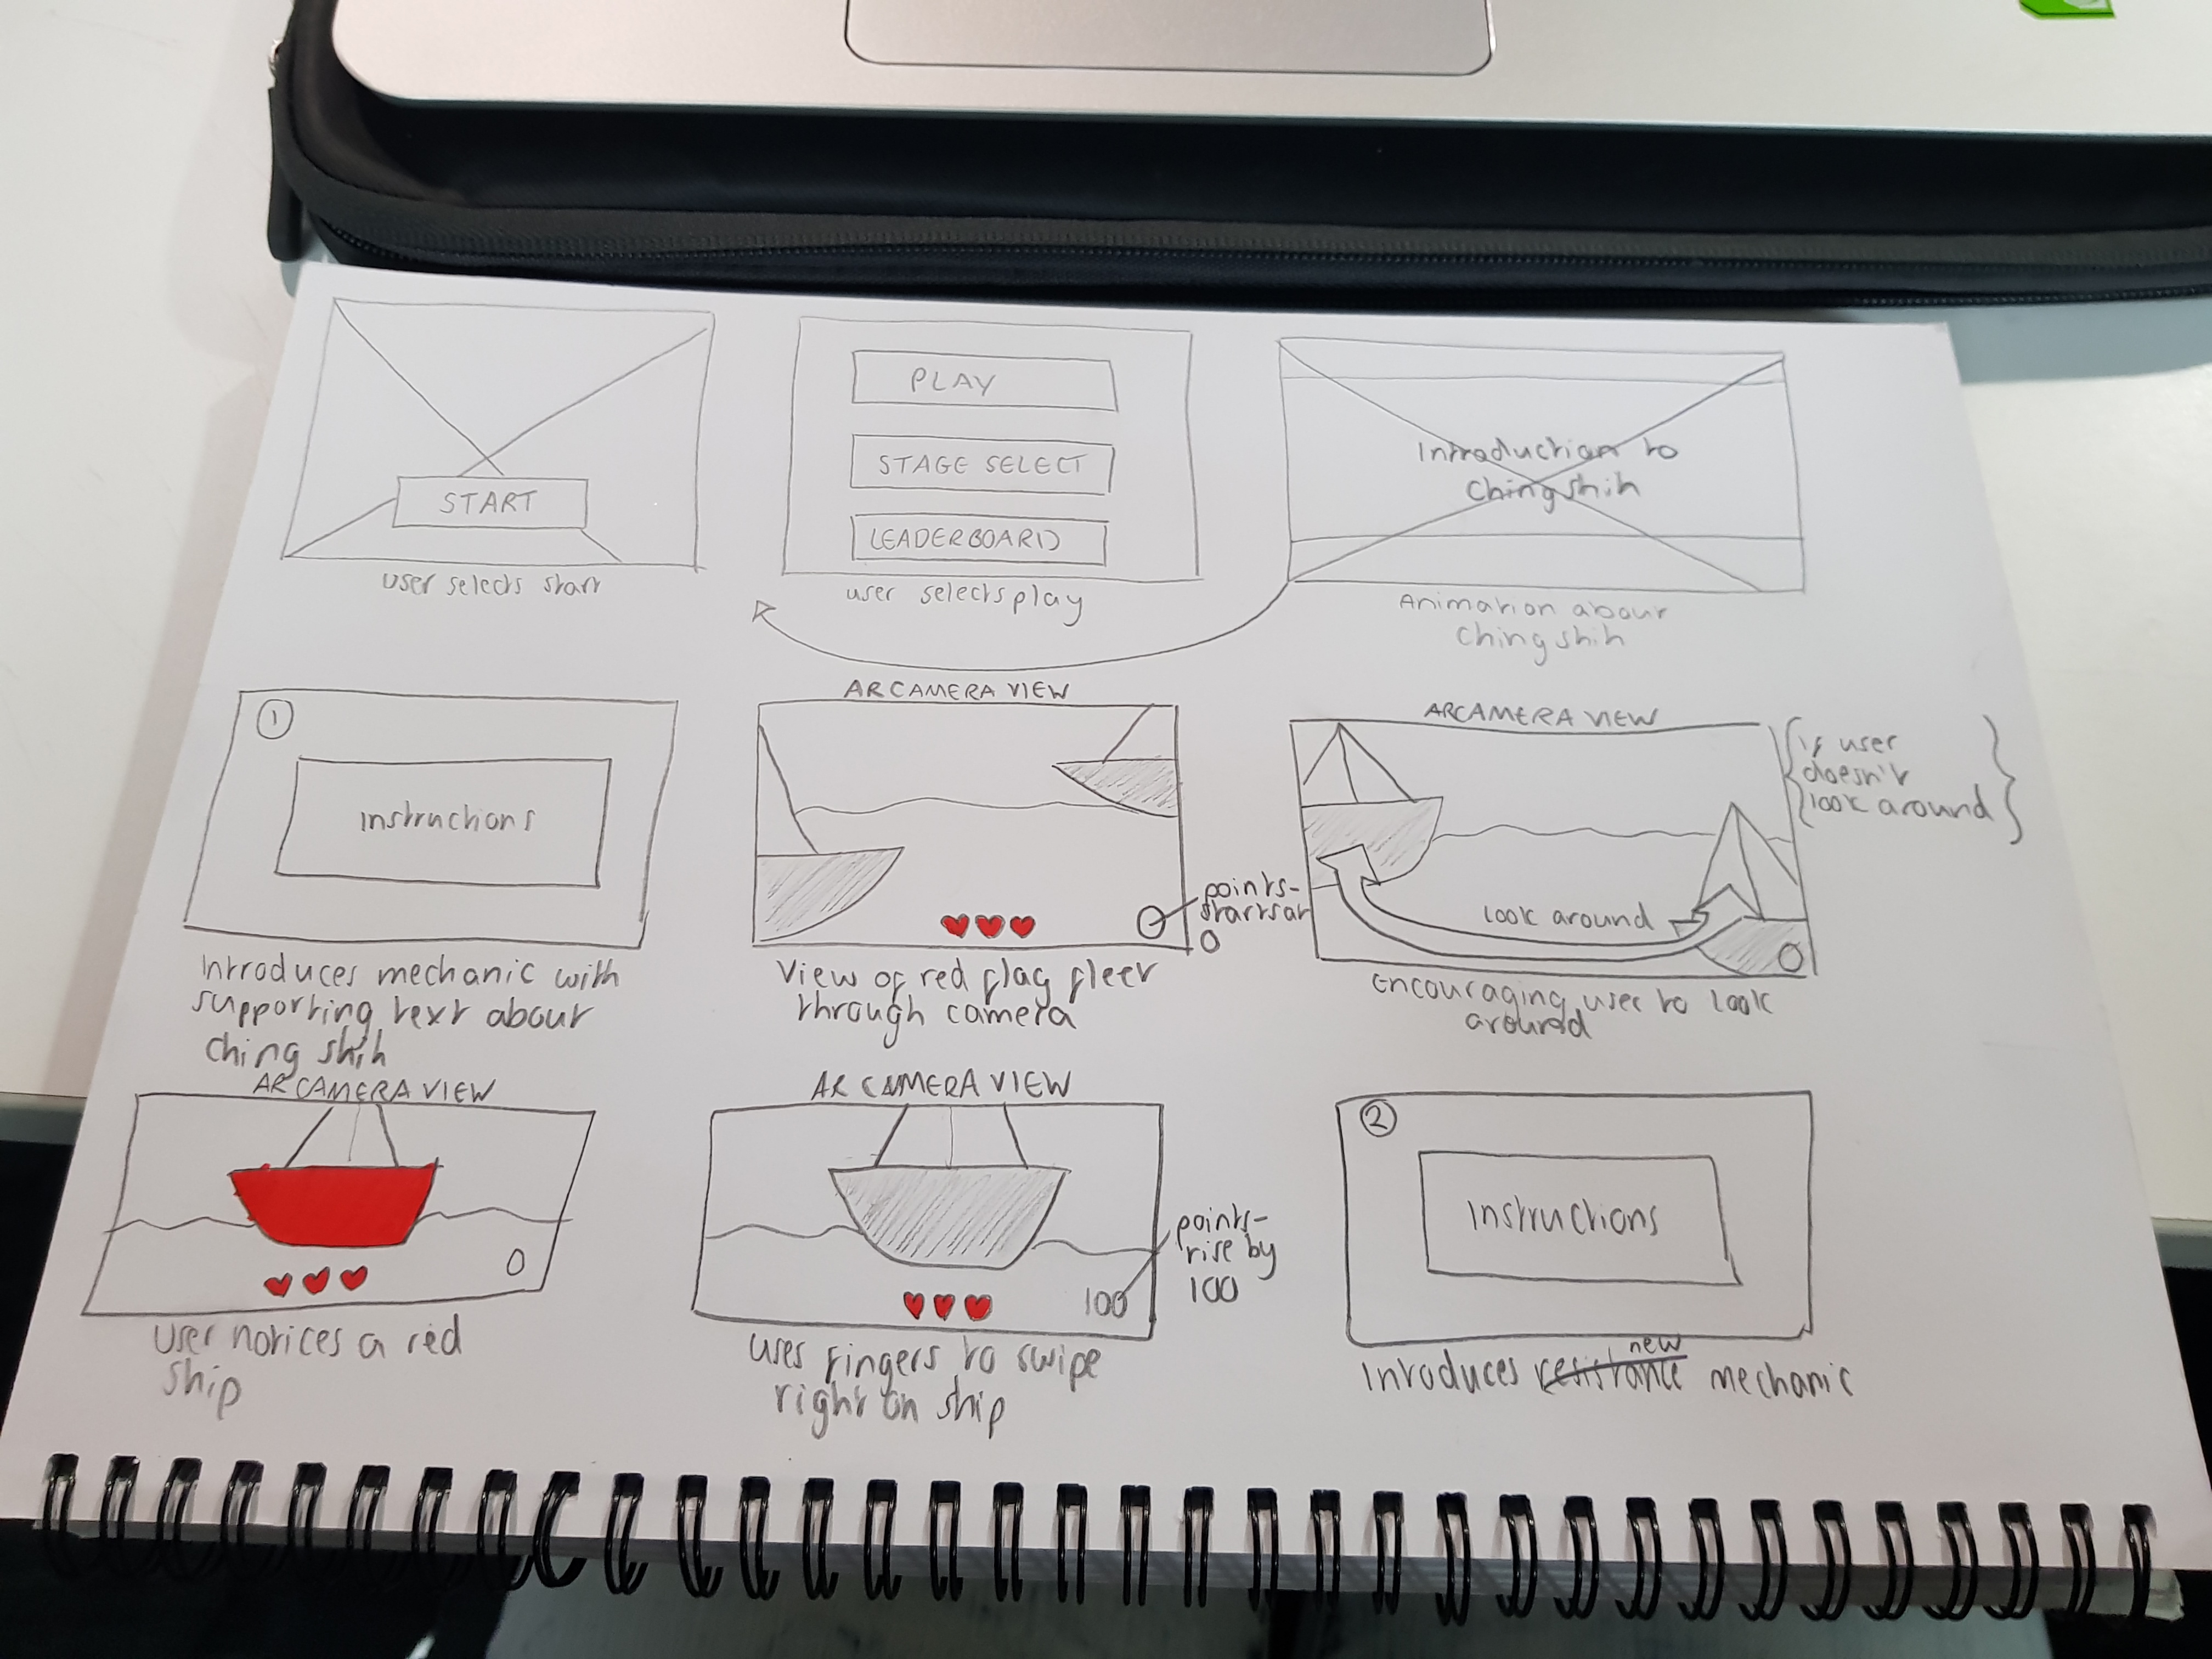 START
user selects start
PLAY
STAGE SELECT
LEADERBOARD
user selects play
Introduction to
Ching shih
Animation about
Ching shih
1
Instructions
Introduces mechanic with
supporting text about
Ching shih
AR CAMERA VIEW
points-
starts at
0
View of red flag fleet
through camera
AR CAMERA VIEW
{if user
doesn't
look around}
look around
0
Encouraging user to look
around
AR CAMERA VIEW
0
User notices a red
ship
AR CAMERA VIEW
100
points-
rise by
100
uses fingers to swipe
right on ship
2
Instructions
new
Introduces resistance mechanic